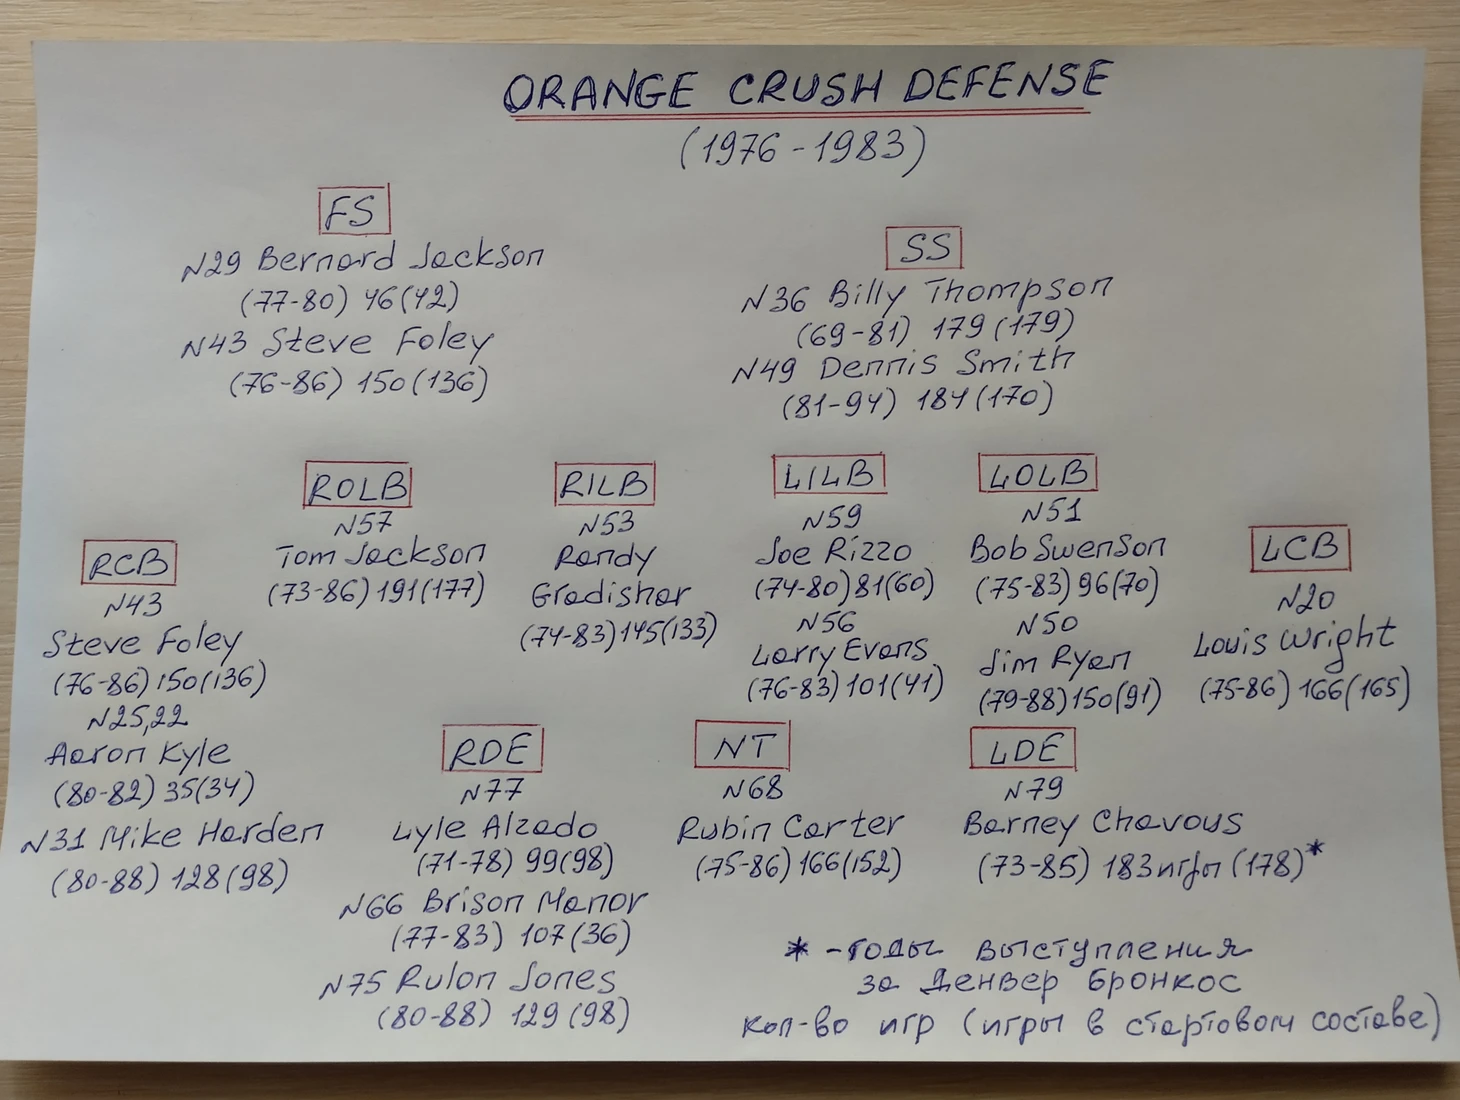 ORANGE CRUSH DEFENSE
(1976-1983)
FS
N29 Bernard Jackson
(77-80) 46(42)
N43 Steve Foley
(76-86) 150(136)
SS
N36 Billy Thompson
(69-81) 179(179)
N49 Dennis Smith
(81-94) 184(170)
RCB
N43
Steve Foley
(76-86) 150(136)
N25,22
Aaron Kyle
(80-82) 35(34)
N31 Mike Harden
(80-88) 128(98)
ROLB
N57
Tom Jackson
(73-86) 191(177)
RILB
N53
Randy
Gradishar
(74-83) 145(133)
LILB
N59
Joe Rizzo
(74-80) 81(60)
N56
Larry Evans
(76-83) 101(41)
LOLB
N51
Bob Swenson
(75-83) 96(70)
N50
Jim Ryan
(79-88) 150(91)
LCB
N20
Louis Wright
(75-86) 166(165)
RDE
N77
Lyle Alzado
(71-78) 99(98)
N66 Brison Manor
(77-83) 107(36)
N75 Rulon Jones
(80-88) 129(98)
NT
N68
Rubin Carter
(75-86) 166(152)
LDE
N79
Barney Chavous
(73-85) 183 игры (178)*
* - годы выступления
за Денвер Бронкос
кол-во игр (игры в стартовом составе)